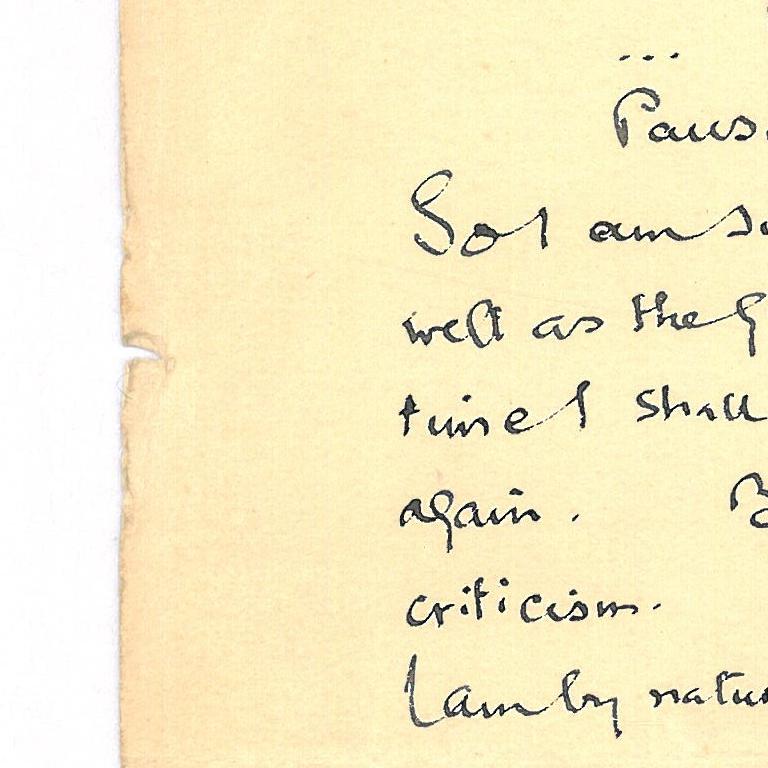 ...
Paus
So I am s
well as the G
time I shall
again. B
criticism.
I am by natu